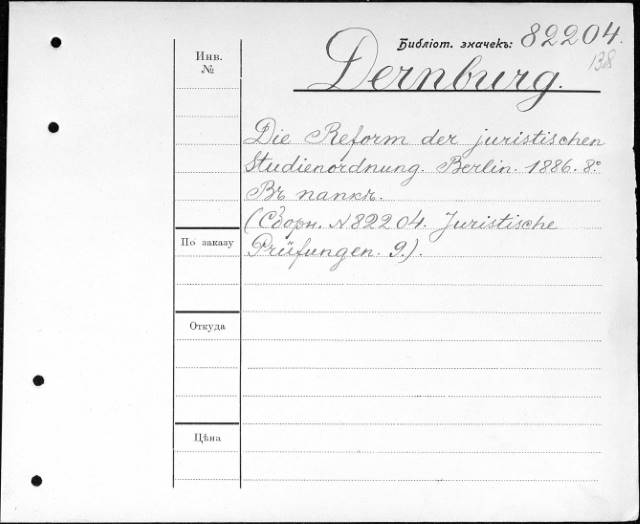 Библіот. значекъ: 82204.
138
Dernburg.
Инв.
№
Die Reform der juristischen
Studienordnung. Berlin. 1886. 8°.
Въ папкѣ.
(Сборн. N 82204. Juristische
Prüfungen. 9.).
По заказу
Откуда
Цѣна